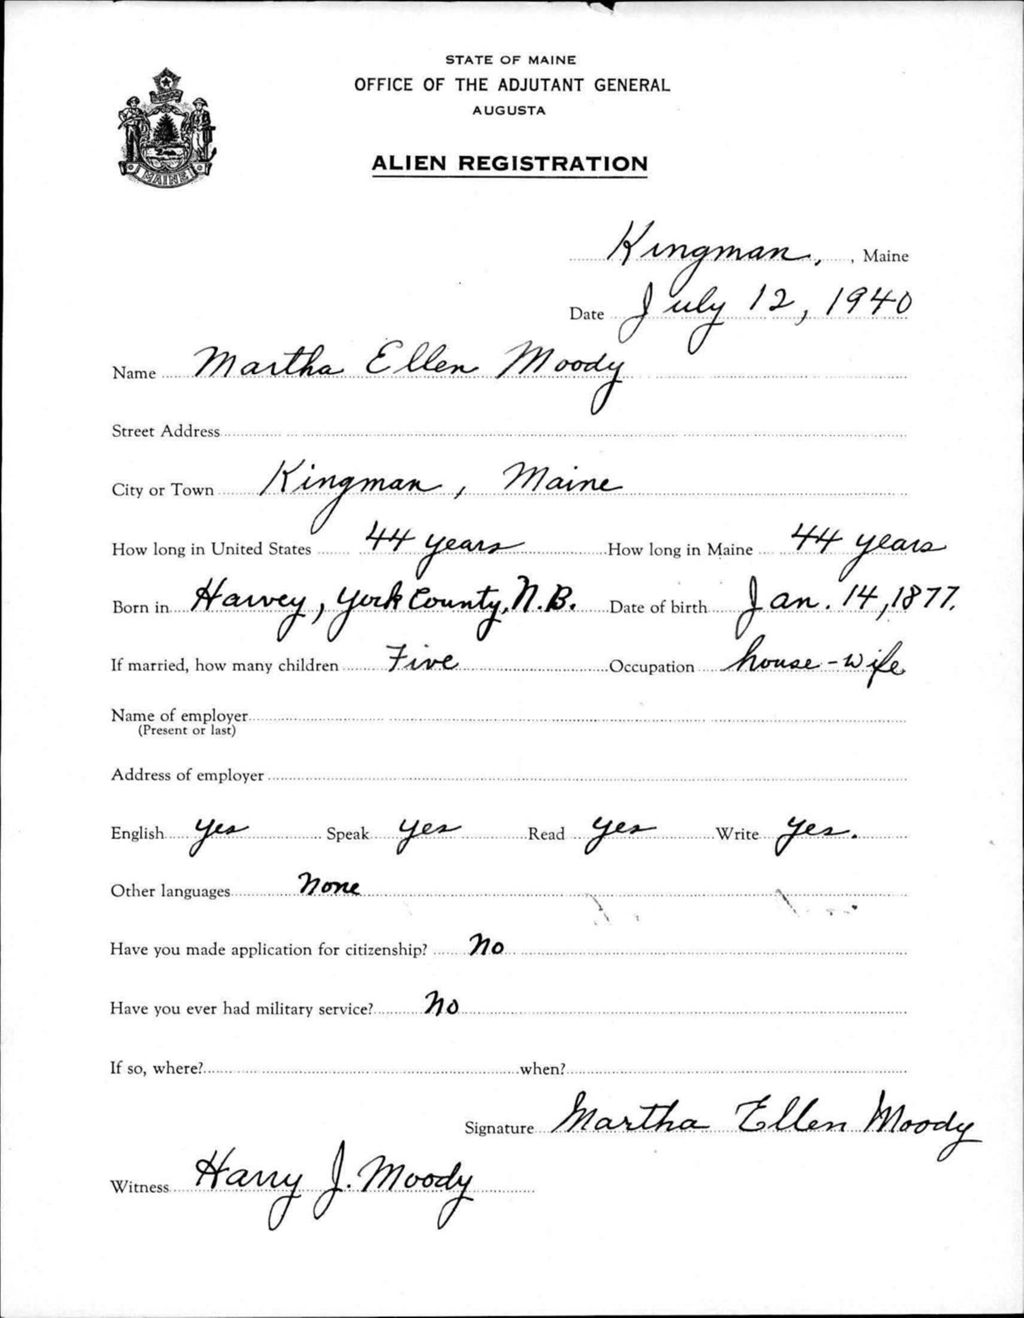 STATE OF MAINE
OFFICE OF THE ADJUTANT GENERAL
AUGUSTA
ALIEN REGISTRATION
MAINE
Kingman, , Maine
Date July 12, 1940
Name Martha Ellen Moody
Street Address
City or Town Kingman, Maine
How long in United States 44 years How long in Maine 44 years
Born in Harvey, York County, N.B. Date of birth Jan. 14, 1877.
If married, how many children Five Occupation house-wife
Name of employer
(Present or last)
Address of employer
English yes Speak yes Read yes Write yes.
Other languages None
Have you made application for citizenship? No
Have you ever had military service? No
If so, where? when?
Signature Martha Ellen Moody
Witness Harry J. Moody